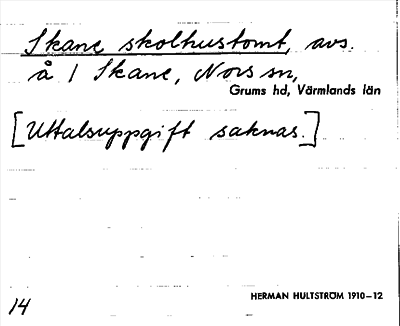 Skane skolhustomt, avs.
å 1 Skane, Nors sn,
Grums hd, Värmlands län
[Uttalsuppgift saknas.]
HERMAN HULTSTRÖM 1910–12
14